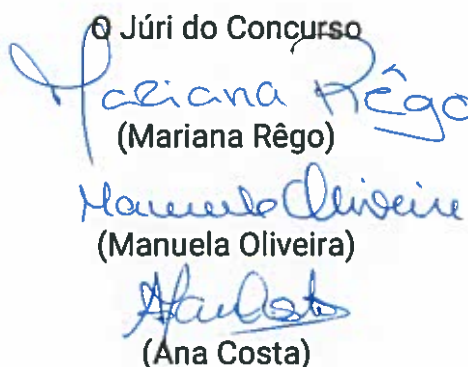 O Júri do Concurso
Mariana Rêgo
(Mariana Rêgo)
Manuela Oliveira
(Manuela Oliveira)
Ana Costa
(Ana Costa)